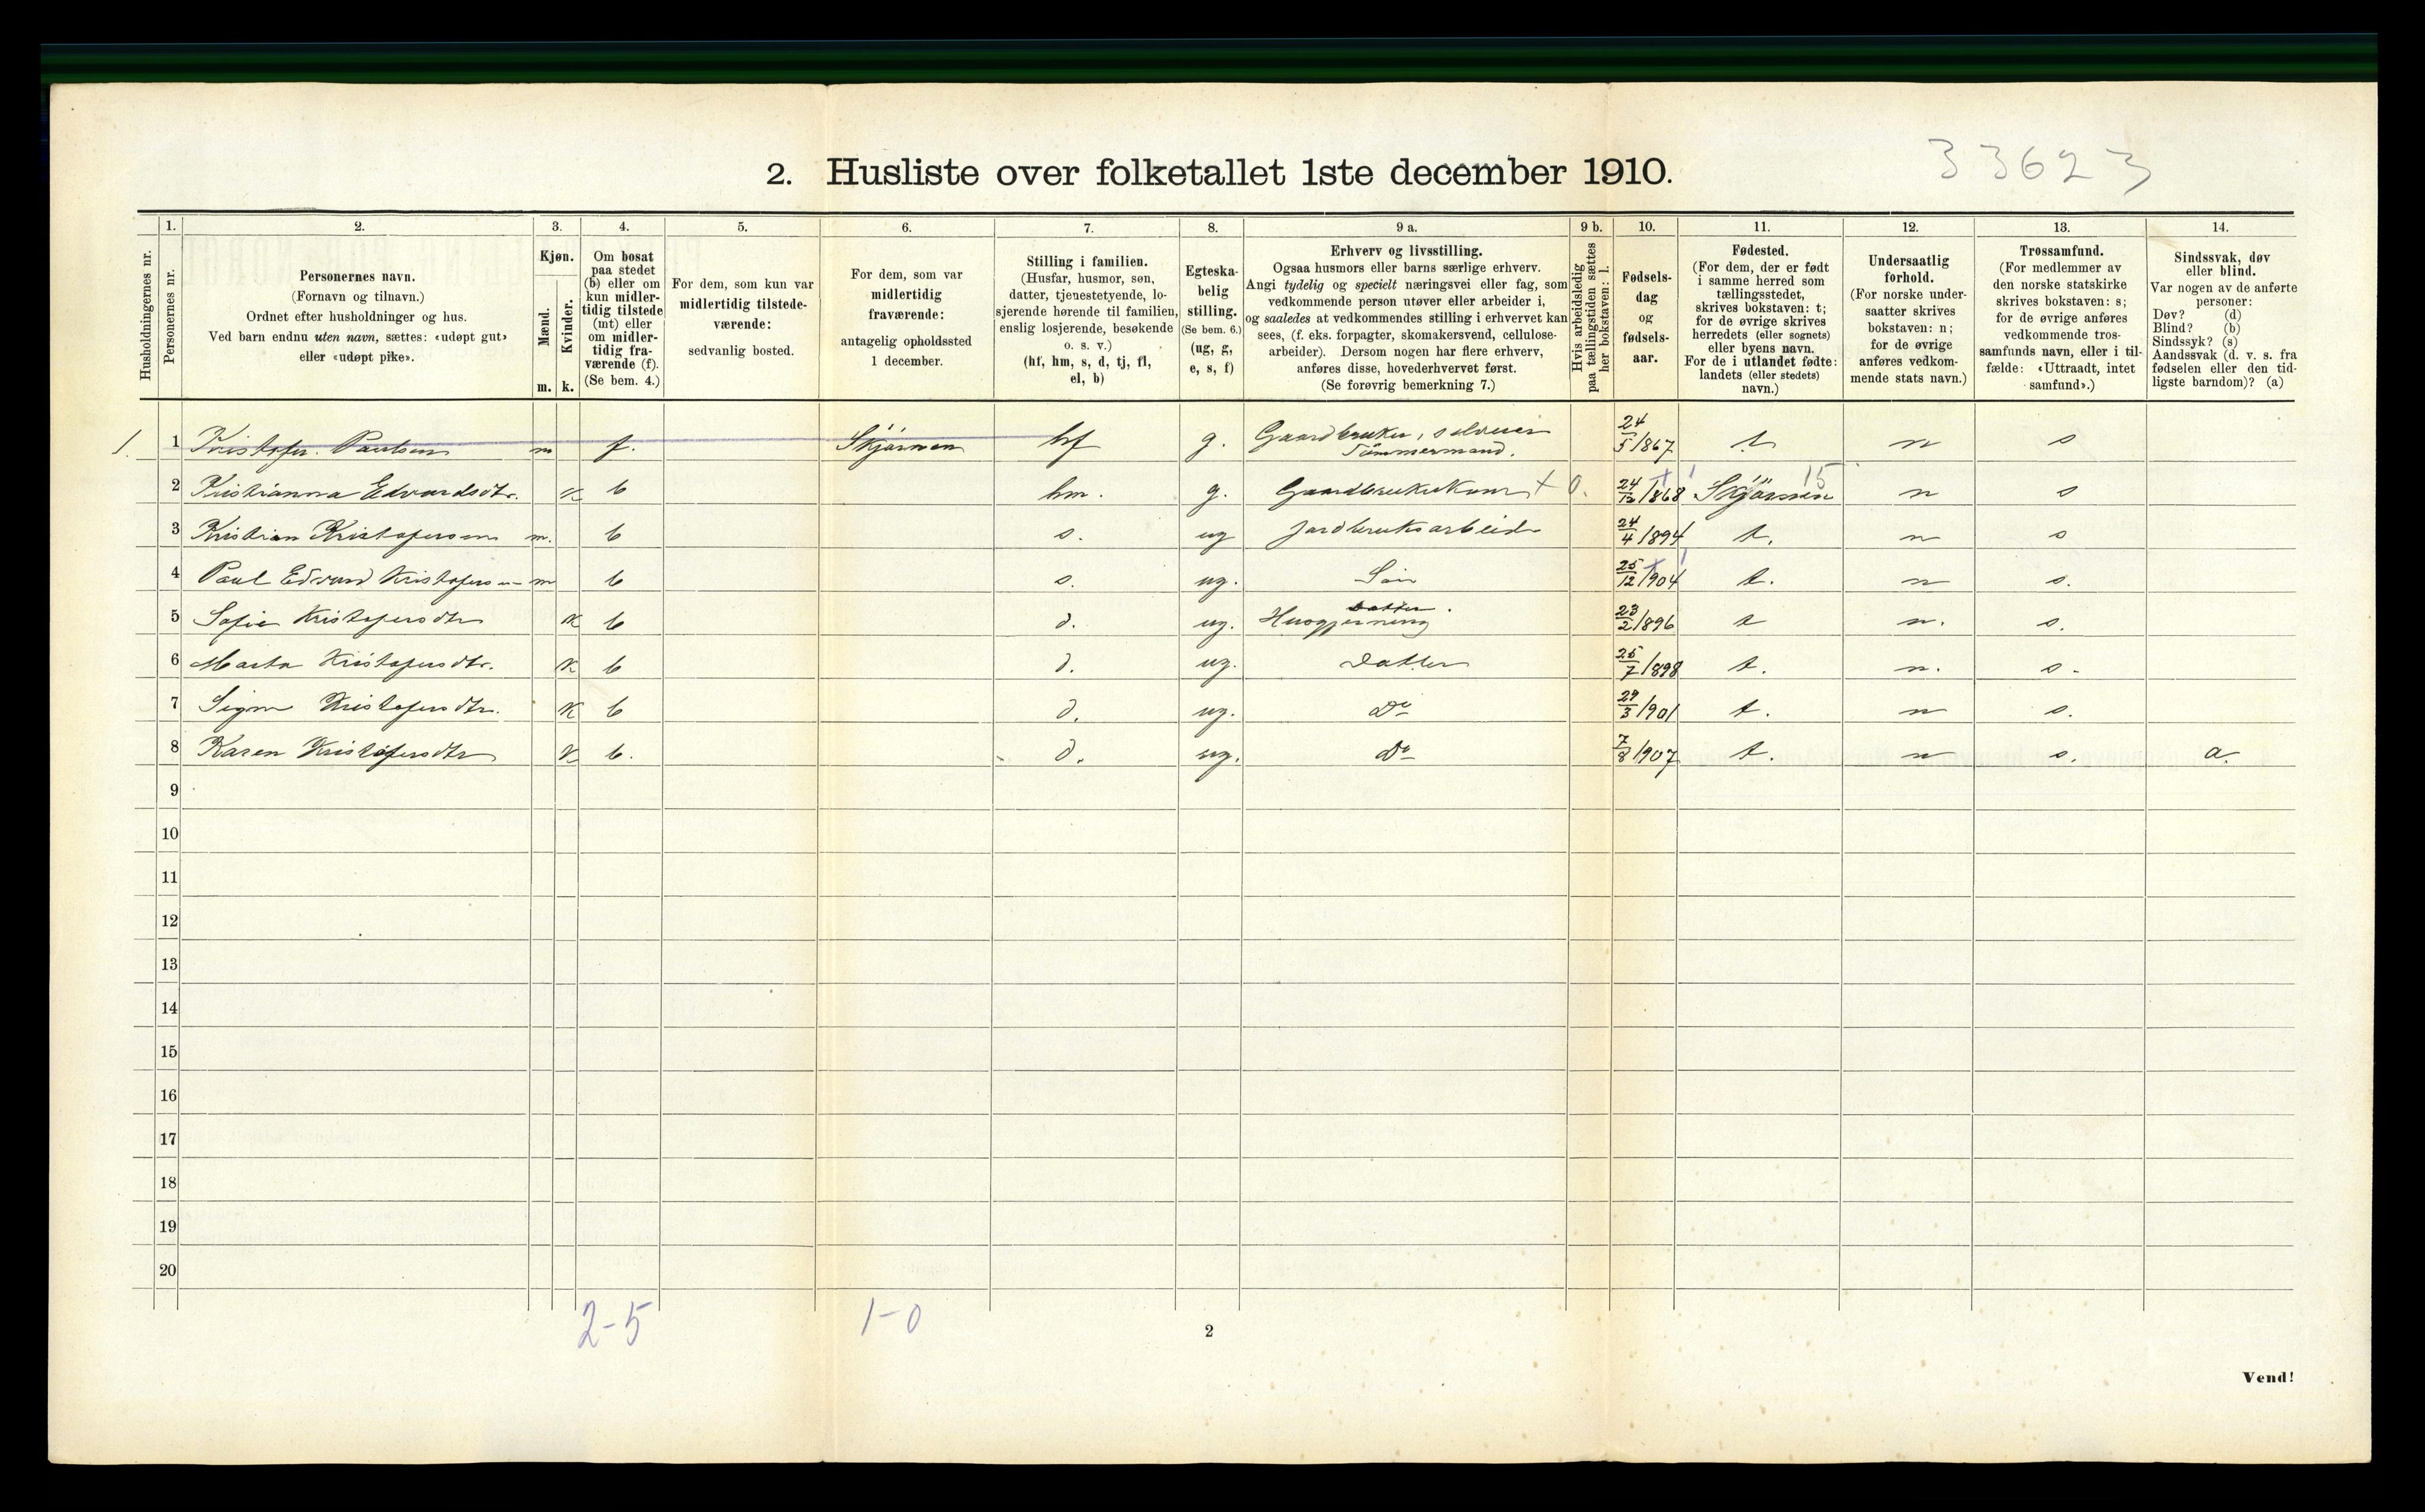 33623
2. Husliste over folketallet 1ste december 1910.
1. 2. 3. 4. 5. 6. 7. 8. 9 a. 9 b. 10. 11. 12. 13. 14.
Husholdningernes nr.
Personernes nr.
Personernes navn.
(Fornavn og tilnavn.)
Ordnet efter husholdninger og hus.
Ved barn endnu uten navn, sættes: «udøpt gut»
eller «udøpt pike».
Kjøn.
Mænd.
Kvinder.
m. k.
Om bosat
paa stedet
(b) eller om
kun midler-
tidig tilstede
(mt) eller
om midler-
tidig fra-
værende (f).
(Se bem. 4.)
For dem, som kun var
midlertidig tilstede-
værende:
sedvanlig bosted.
For dem, som var
midlertidig
fraværende:
antagelig opholdssted
1 december.
Stilling i familien.
(Husfar, husmor, søn,
datter, tjenestetyende, lo-
sjerende hørende til familien,
enslig losjerende, besøkende
o. s. v.)
(hf, hm, s, d, tj, fl,
el, b)
Egteska-
belig
stilling.
(Se bem. 6.)
(ug, g,
e, s, f)
Erhverv og livsstilling.
Ogsaa husmors eller barns særlige erhverv.
Angi tydelig og specielt næringsvei eller fag, som
vedkommende person utøver eller arbeider i,
og saaledes at vedkommendes stilling i erhvervet kan
sees, (f. eks. forpagter, skomakersvend, cellulose-
arbeider). Dersom nogen har flere erhverv,
anføres disse, hovederhvervet først.
(Se forøvrig bemerkning 7.)
Hvis arbeidsledig
paa tællingstiden sættes
her bokstaven: l.
Fødsels-
dag
og
fødsels-
aar.
Fødested.
(For dem, der er født
i samme herred som
tællingsstedet,
skrives bokstaven: t;
for de øvrige skrives
herredets (eller sognets)
eller byens navn.
For de i utlandet fødte:
landets (eller stedets)
navn.)
Undersaatlig
forhold.
(For norske under-
saatter skrives
bokstaven: n;
for de øvrige
anføres vedkom-
mende stats navn.)
Trossamfund.
(For medlemmer av
den norske statskirke
skrives bokstaven: s;
for de øvrige anføres
vedkommende tros-
samfunds navn, eller i til-
fælde: «Uttraadt, intet
samfund».)
Sindssvak, døv
eller blind.
Var nogen av de anførte
personer:
Døv? (d)
Blind? (b)
Sindssyk? (s)
Aandssvak (d. v. s. fra
fødselen eller den tid-
ligste barndom)? (a)
1. 1 Kristofer Paulsen m f. Skjörnen hf g. Gaardbruker, selveier Tömmermand. 24/5 1867 t n s
2 Kristianna Edvardsdtr. k b hm. g. Gaardbrukerkone + 0. 24/12 1868 Skjörnen 15 n s
3 Kristian Kristofersen m. b s. ug Jordbruksarbeid 24/4 1894 t. n s
4 Paul Edvard Kristofersen m b s. ug. Sön 25/12 1904 t. n s.
5 Sofie Kristofersdtr k b d. ug. Husgjerning Datter. 23/2 1896 t n. s.
6 Marta Kristofersdtr. k b d. ug. Datter 25/7 1898 t. n. s.
7 Signe Kristofersdtr. k b d. ug. Do 29/3 1901 t. n s.
8 Karen Kristofersdtr k b. d. ug. Do 7/8 1907 t. n s. a.
9
10
11
12
13
14
15
16
17
18
19
20
2-5 1-0
2
Vend!